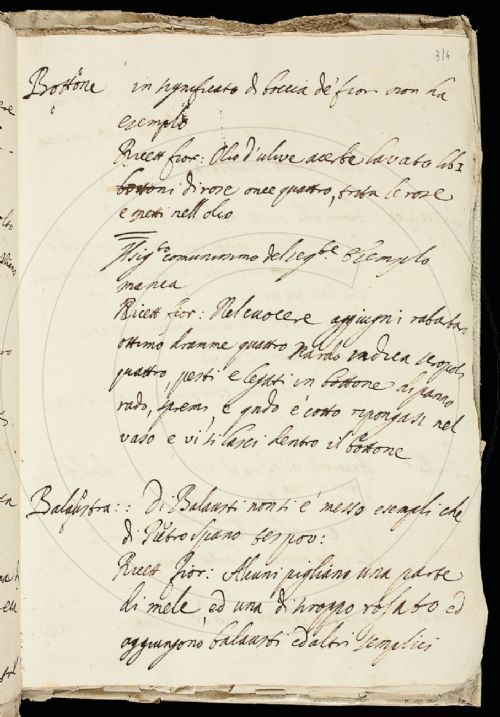 316
Bottone in significato di boccia de' fiori non ha
esemplo
Ricett fior: Olio d'ulive acerbe lavato lib 1
bottoni di rose once quattro, trita le rose
e metti nell'olio
Il sig.to comunissimo del seg.te Esemplo
manca
Ricett fior: Nel cuocere aggiugni rabarbaro
ottimo dramme quattro Nardo indica scropoli
quattro, pesti e legati in bottone di panno
rado, spremi, e qndo è cotto ripongasi nel
vaso e vi si lasci dentro il bottone
Balaustra: : Di Balausti non ti è messo esempli che
di Pietro Spano tes pov:
Ricett fior: Alcuni pigliano una parte
di mele ed una di siroppo rosato ed
aggiungono balausti ed altri semplici